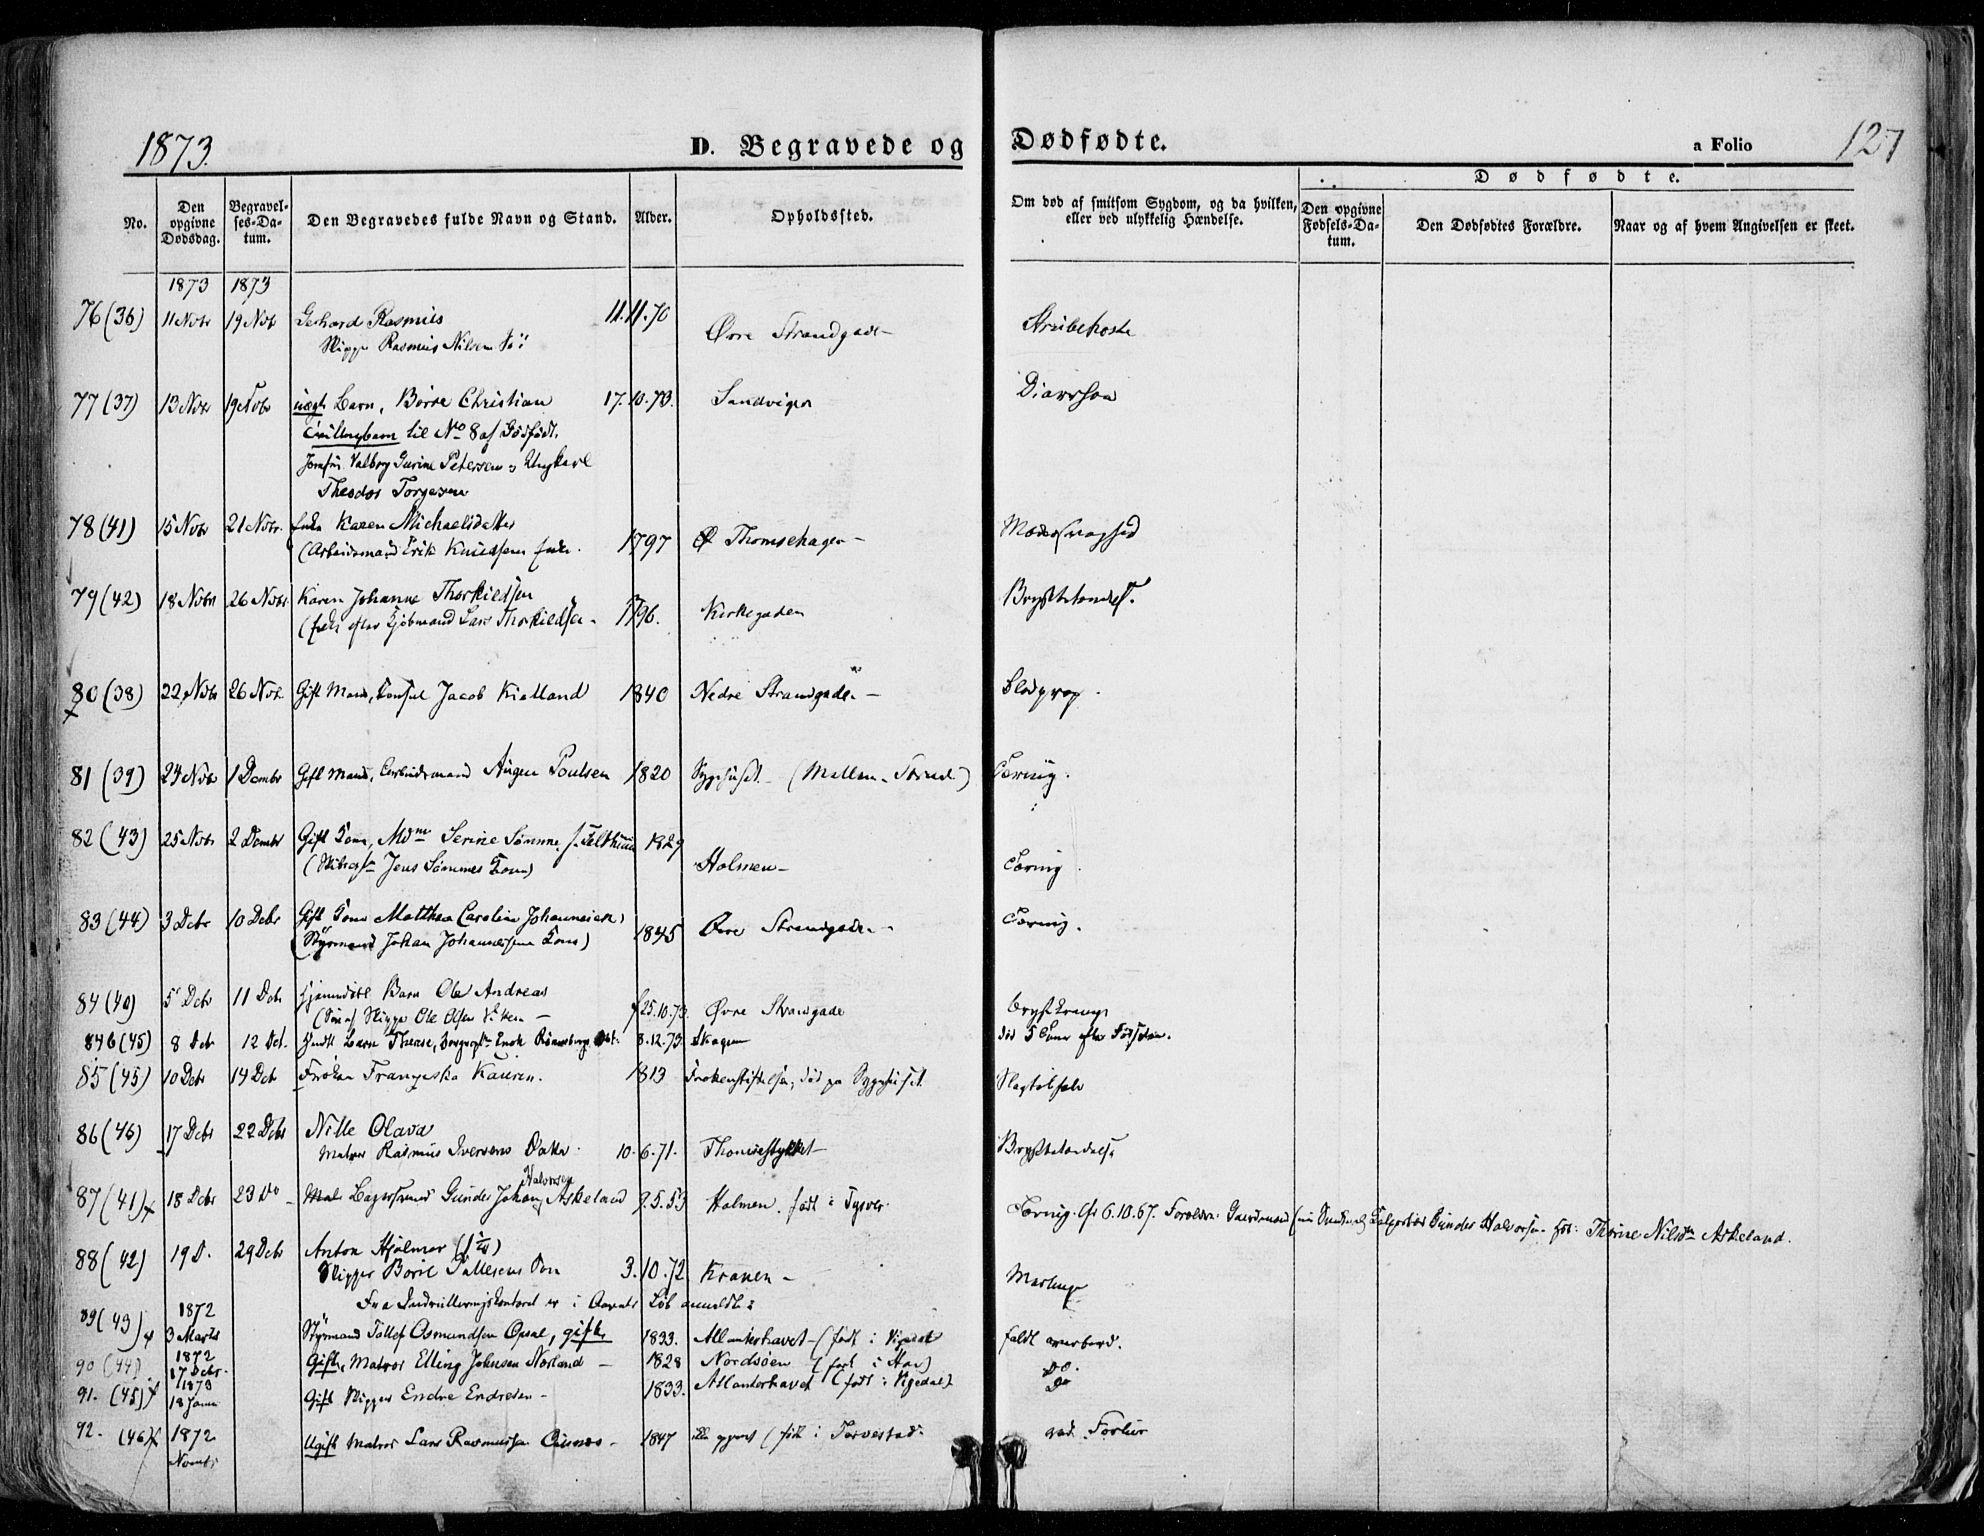 1873.
D. Begravede og Dødfødte.
a Folio 127
No.
Den opgivne Dødsdag.
Begravelses-Datum.
Den Begravedes fulde Navn og Stand.
Alder.
Opholdssted.
Om død af smitsom Sygdom, og da hvilken, eller ved ulykkelig Hændelse.
Dødfødte.
Den opgivne Fødsels-Datum.
Den Dødfødtes Forældre.
Naar og af hvem Angivelsen er skeet.
1873 1873
76 (36) 11 Novbr 19 Nob Gerhard Rasmus 11.11.70 Øvre Strandgade Strubehoste
Skipper Rasmus Nilsen
77 (37) 13 Novbr 19 Novbr uægt Barn, Børre Christian 17.10.73. Sandvigen Diarrhoe
Tvillingbarn til No 8 af Dødfødt.
Jomfru Valborg Gurine Petersen og Ungkarl
Theodor Torgersen
78 (41) 15 Novbr 21 Novbr. Enke Karen Michaelsdatter
(Arbeidsmand Erik Knudsens Enke. 1797 Ø Thomsehagen
79 (42) 18 Novbr 26 Novbr. Karen Johanne Thorkildsen
(Enke efter Kjøbmand Lars Thorkildsen 1796. Kirkegaden Brystbetændelse.
80 (38) 22 Novbr 26 Nob. Gift Mand, Consul Jacob Kielland 1840 Nedre Strandgade Blodprop.
81 (39) 24 Nobr 1 Decmbr Gift Mand, Arbeidsmand Poulsen 1820 Sygehuset (Mellem Strand) Tæring.
82 (43) 25 Nobr 2 Decmbr Gift Kone, Mdme Serine Sømme f. 1829
Jens Sømmes Kone) Holmen Tæring
83 (44) 3 Decbr 10 Decbr Gift Kone Matthea Caroline Johannesen
(Styrmand Johan Johannesens Kone) 1845 Øvre Strandgade Tæring.
84 (40) 5 Decbr 11 Decbr hjemmedøbt Barn Ole Andreas
(Søn af Skipper Ole Olsen 25.10.73. Øvre Strandgade Brystkrampe
84b (45) 8 Decbr 12 Dec. Barn Therese, 8.12.73 Skagen død 5 Timer efter Fødselen.
85 (45) 10 Decbr 14 Decbr Frøken Franziska 1813 Frøkenstiftelsen, død paa Sygehuset. Slagtilfælde
86 (46) 17 Decbr 22 Decbr Nille Olava
Matros Rasmus Iversens Datter. 10.6.71. Thomsestykket Brystbetændelse
Halvorsen
87 (41) 18 Decbr 23 Do Gunder Johan Askeland 9.5.53 Holmen. født i Tysvær Tæring. Cf 6.10.67. Forældre: Gaardmand Gunder Halvorsen og Thorine Nilsdtr Askeland.
88 (42) 19 D. 29 Decbr Anton Hjalmar (1 ¼)
Skipper Børre Tallesens Søn 3.10.72. Kranen
Fra Indrulleringskontoret er i Aarets Løb anmeldt:
89 (43) 1872 3 Marts Styrmand Tollef Osmundsen Opsal, gift 1833. Atlanterhavet (født i Vigedal faldt overbord.
90 (44) 1872 17 Decbr. Gift, Matros Elling Johnsen Norland 1828 Nordsøen (født i Hov) Do.
91. (45) 1873 18 Janu Gift Skipper Endre Endresen 1833. Atlanterhavet (født i Vigedal) Do
92. (46) 1872 Novmbr Ugift Matros Lars Rasmussen 1847 ikke opgivet (født i Torvestad ved Forlis